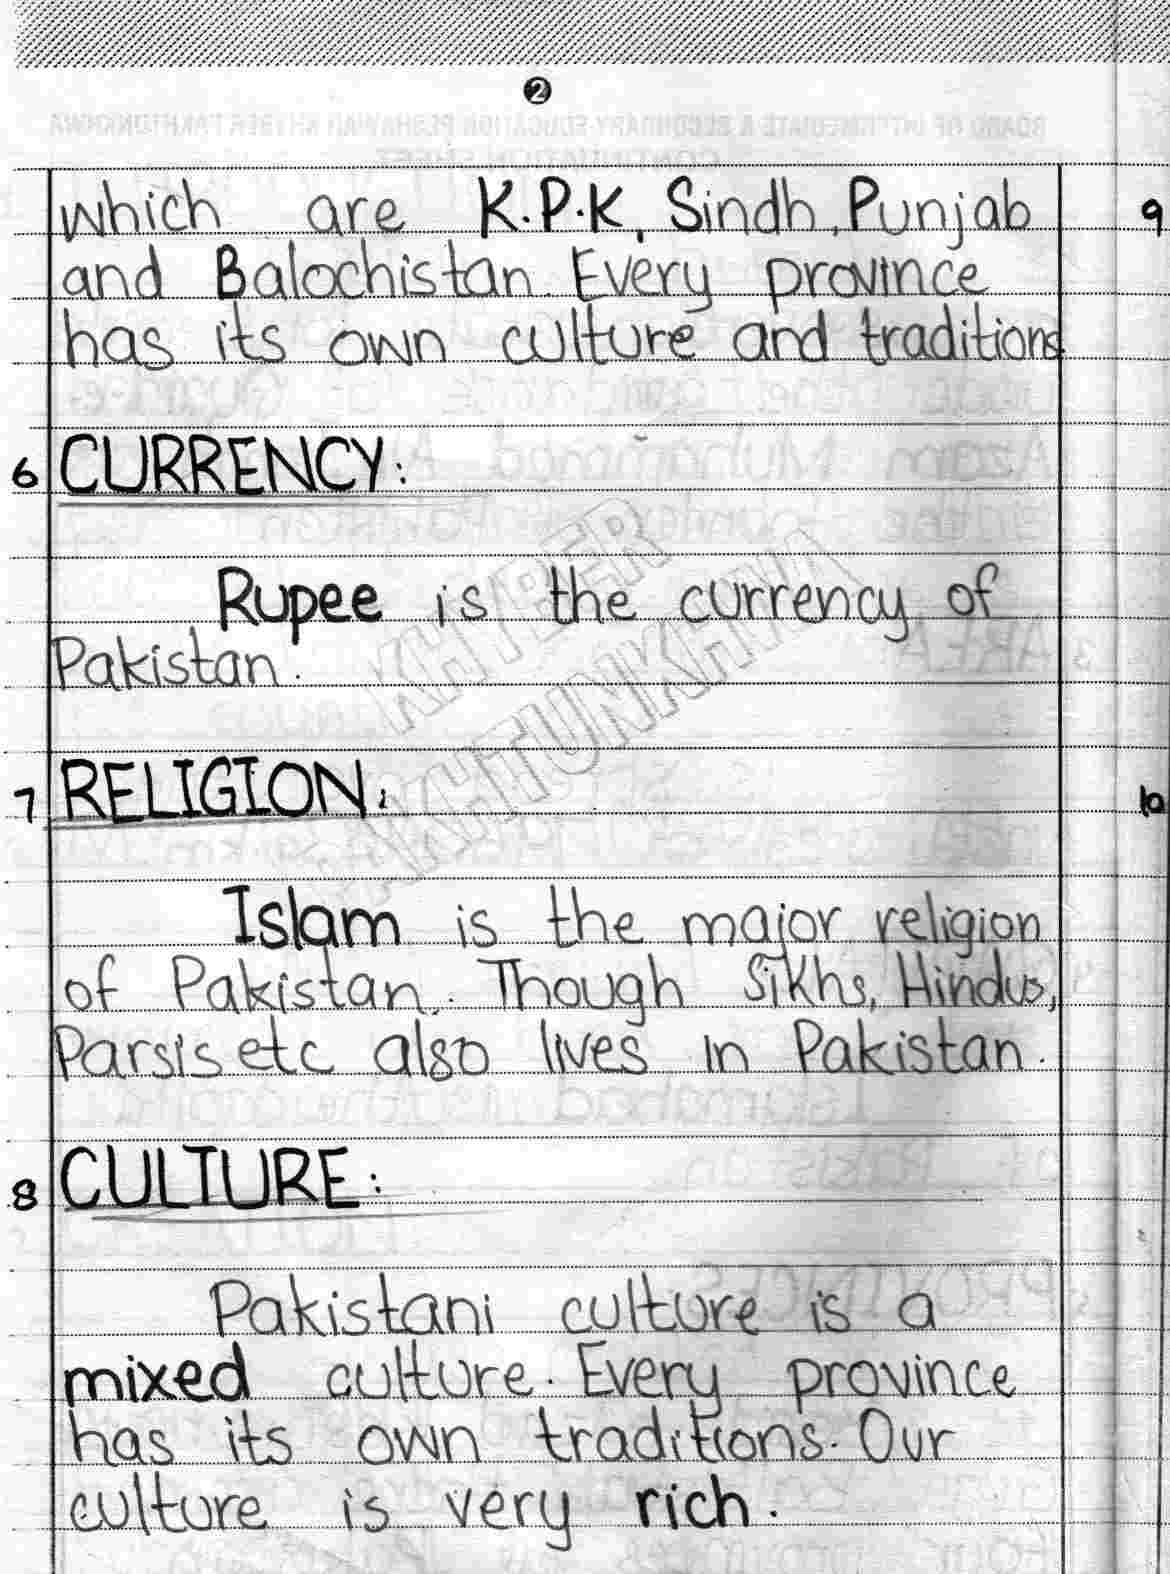 2
which are K.P.K, Sindh, Punjab
and Balochistan. Every province
has its own culture and traditions
6 CURRENCY:
Rupee is the currency of
Pakistan.
7 RELIGION:
Islam is the major religion
of Pakistan. Though Sikhs, Hindus,
Parsis etc also lives in Pakistan.
8 CULTURE:
Pakistani culture is a
mixed culture. Every province
has its own traditions. Our
culture is very rich.
9
10
KHYBER
PAKHTUNKHWA